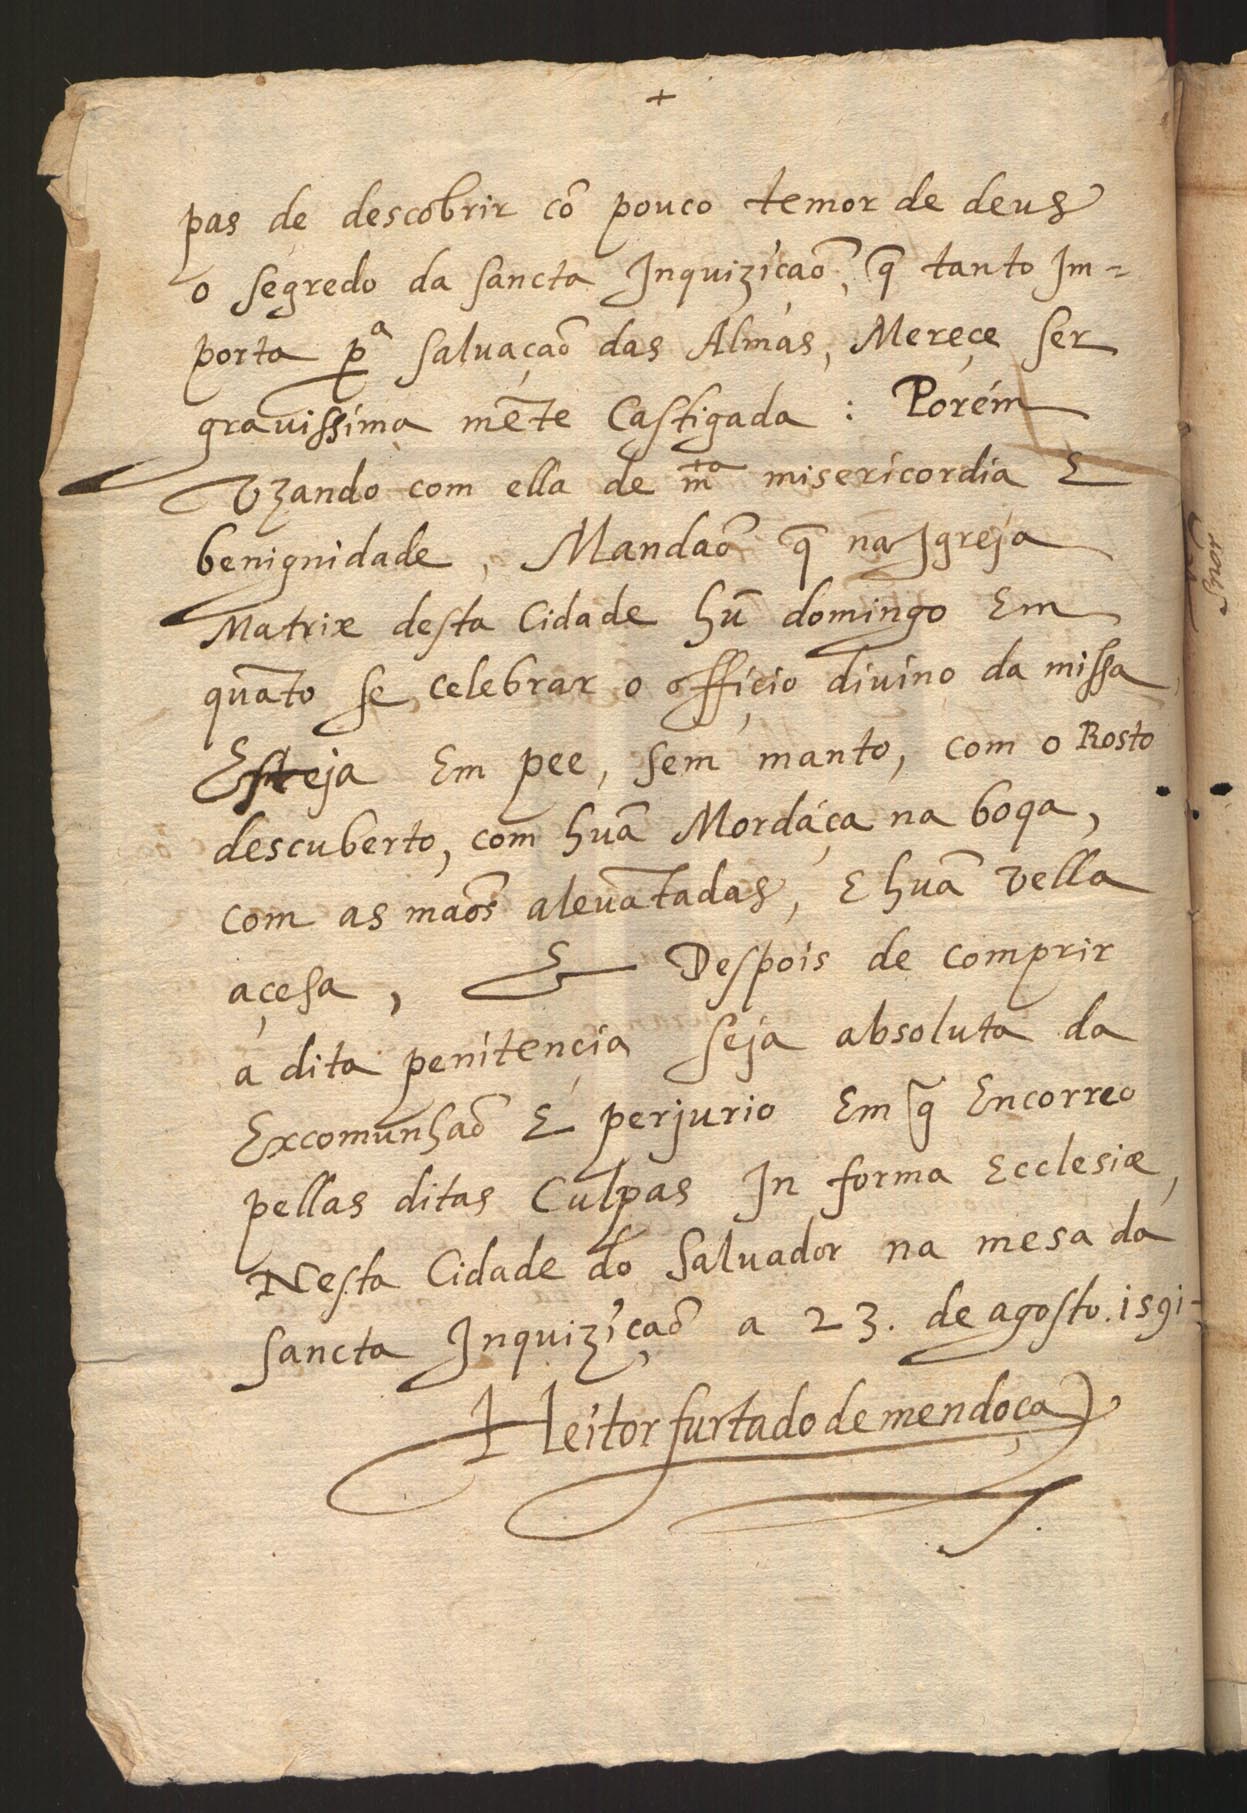 +
pas de descobrir cõ pouco temor de deus
o segredo da sancta Inquiziçaõ, q̃ tanto Im=
porta pª saluaçaõ das Almas, Mereçe ser
grauissima mẽte Castigada : Porém
Vzando com ella de mᵗᵒ misericordia E
benignidade, Mandaõ q̃ na Igreja
Matrix desta Cidade hũ domingo Em
quãto se celebrar o offiçio diuino da missa
Esteja Em pee, sem manto, com o Rosto
descuberto, com huã Mordáça na boqa,
com as maõs aleuãtadas, E huã vella
açesa, E Despois de comprir
a dita penitençia seja absoluta da
Excomunhaõ E perjurio Em q̃ Encorreo
pellas ditas Culpas In forma Ecclesiæ,
Nesta Cidade do Saluador na mesa da
sancta Inquiziçaõ a 23. de agosto. 1591-
Heitor furtado de mendoça